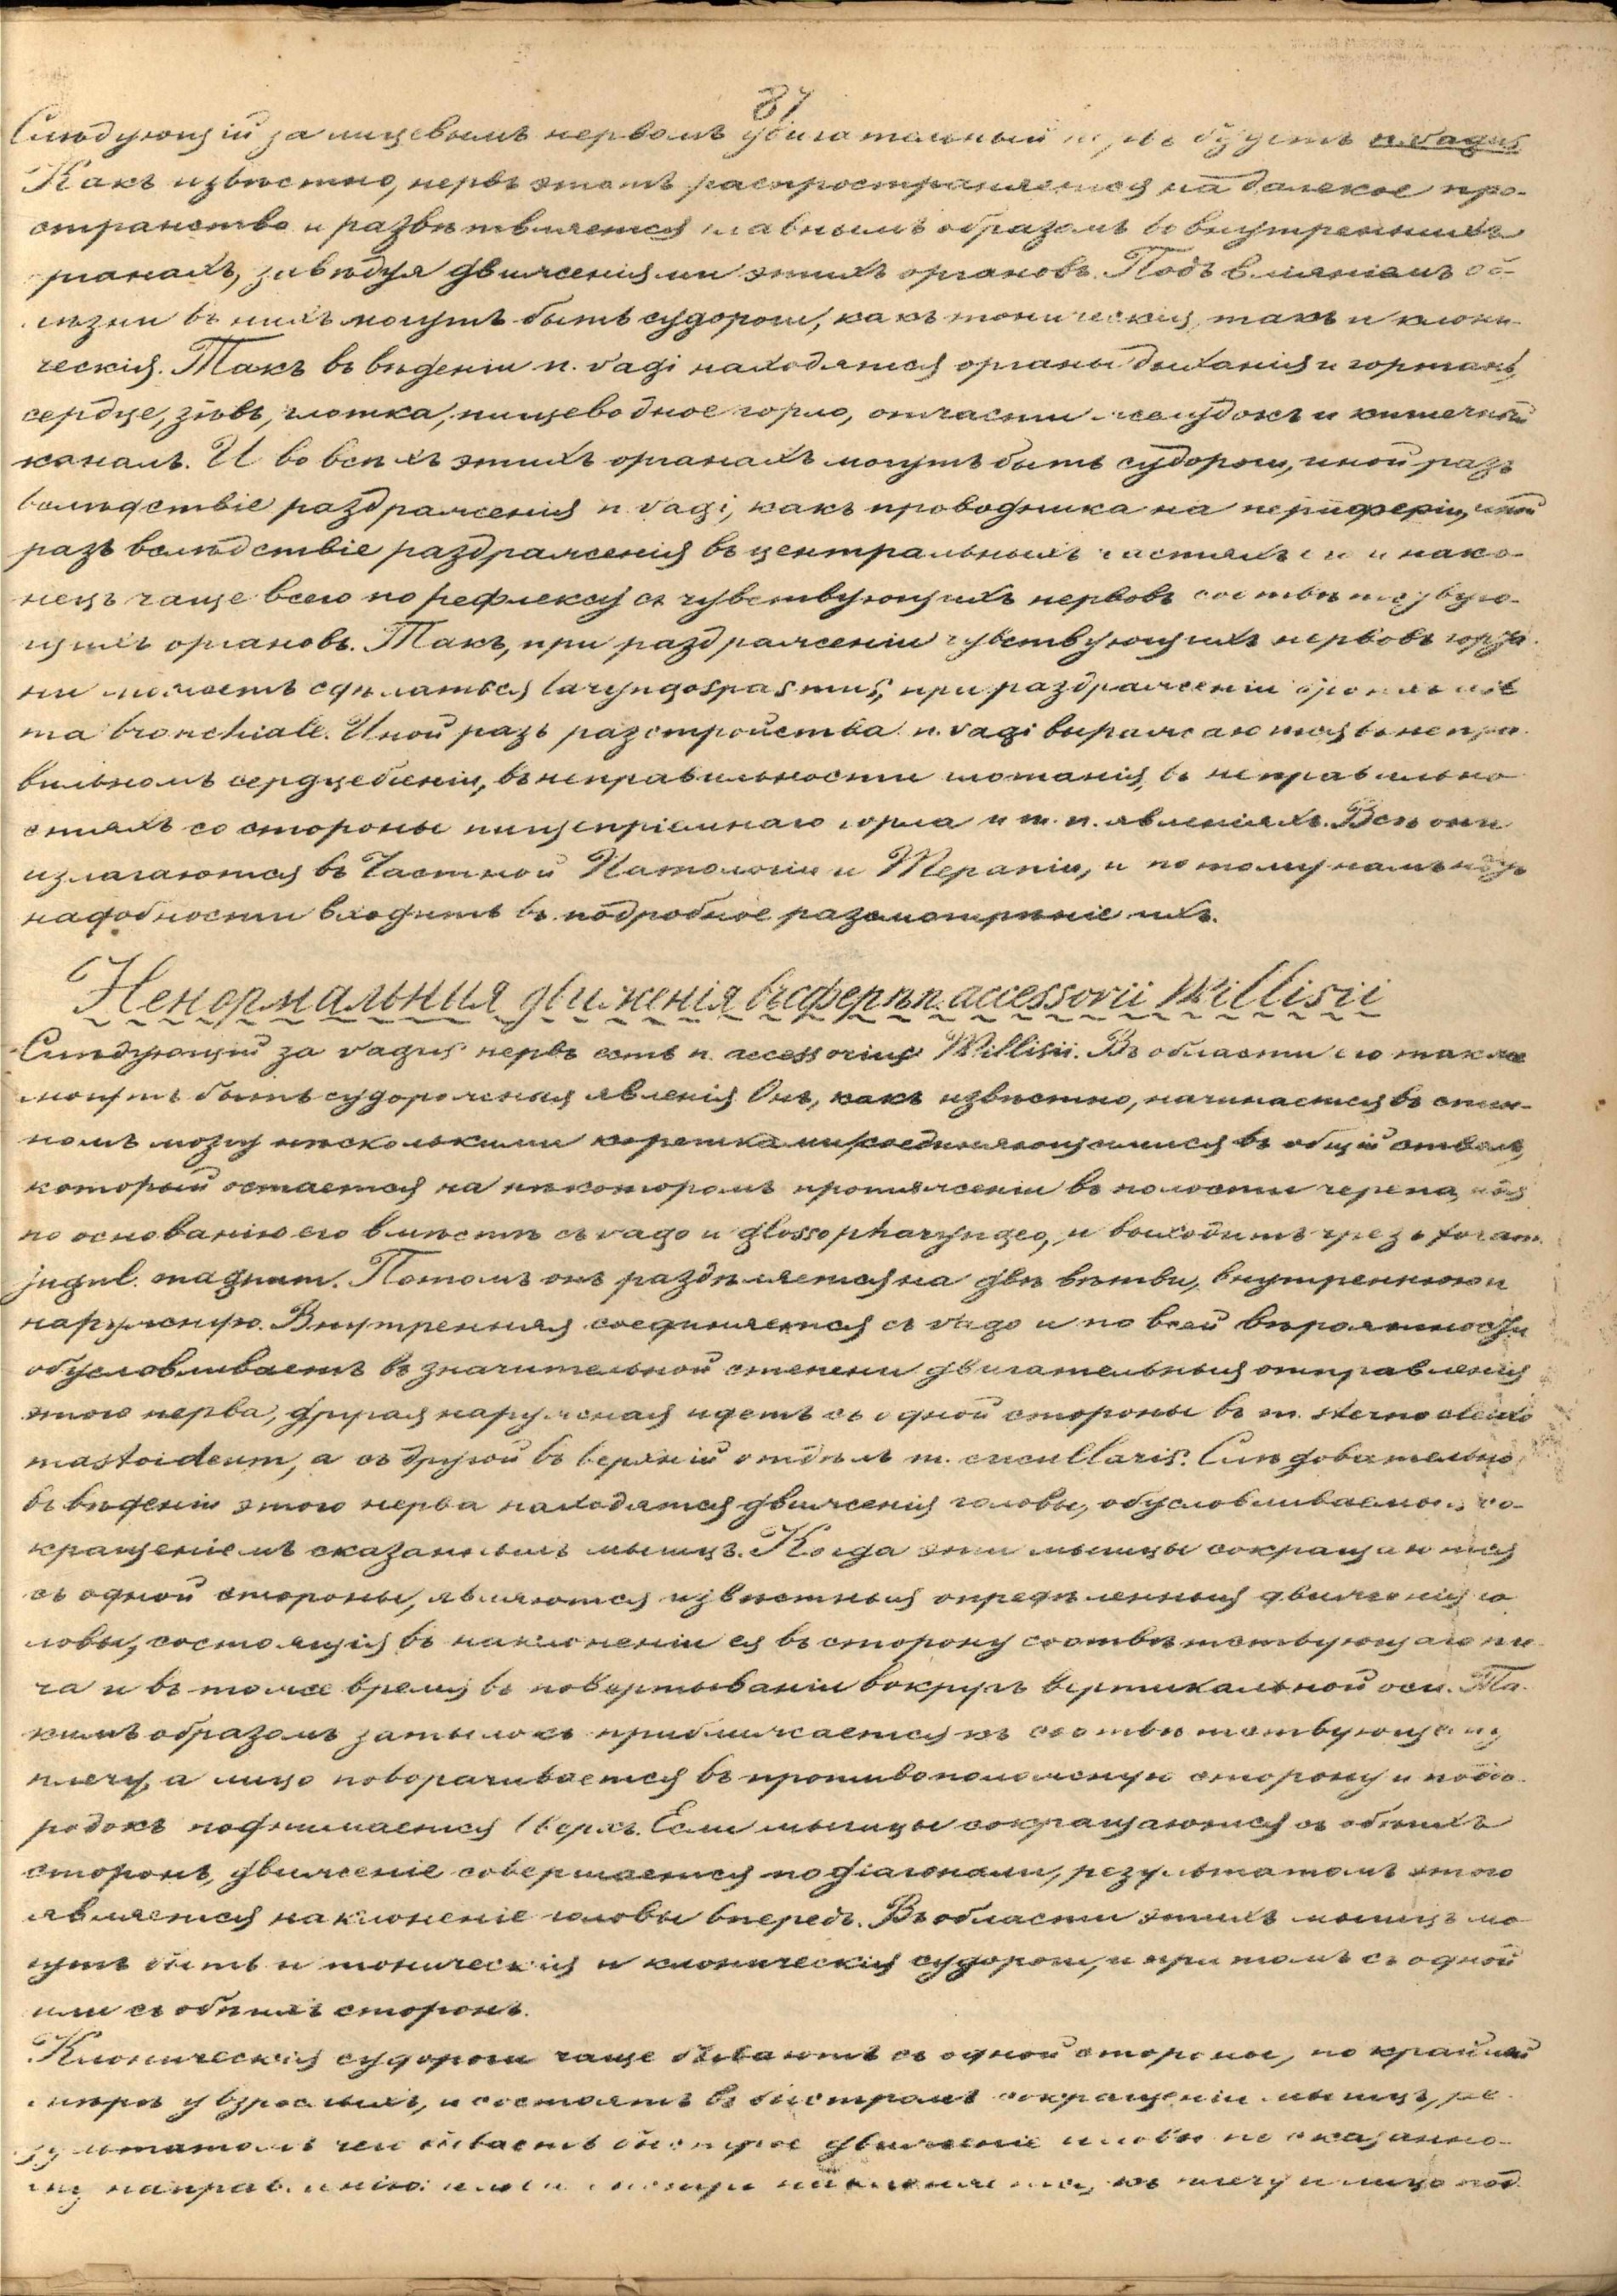 87
Слѣдующій за лицевымъ нервомъ двигательный нервъ будетъ n. vagus
Какъ извѣстно, нервъ этотъ распространяется на далекое про-
странство и развѣтвляется главнымъ образомъ въ внутреннихъ
органахъ, завѣдуя движеніями этихъ органовъ. Подъ вліяніемъ бо-
лѣзни въ нихъ могутъ быть судороги, какъ тоническія, такъ и клони-
ческія. Такъ въ вѣденіи n. vagi находятся органы дыханія и гортань,
сердце, зѣвъ, глотка, пищеводное горло, отчасти желудокъ и кишечный
каналъ. И во всѣхъ этихъ органахъ могутъ быть судороги, иной разъ
вслѣдствіе раздраженія n. vagi, какъ проводника на периферіи, иной
разъ вслѣдствіе раздраженія въ центральныхъ частяхъ его и нако-
нецъ чаще всего по рефлексу съ чувствующихъ нервовъ соотвѣтству-
ющихъ органовъ. Такъ, при раздраженіи чувствующихъ нервовъ горта-
ни можетъ сдѣлаться laryngospasmus, при раздраженіи
ma bronchiale. Иной разъ разстройства n. vagi выражаются въ непра-
вильномъ сердцебіеніи, въ неправильности глотанія, въ неправильно-
стяхъ со стороны пищепріемнаго горла и т. п. явленіяхъ. Всѣ они
излагаются въ Частной Патологіи и Терапіи, и потому намъ нѣтъ
надобности входить въ подробное разсмотрѣніе ихъ.
Ненормальныя движенія въ сферѣ n. accessorii Willisii
Слѣдующій за vagus нервъ есть n. accessorius Willisii. Въ области его также
могутъ быть судорожныя явленія Онъ, какъ извѣстно, начинается въ спин-
номъ мозгу нѣсколькими корешками, соединяющимися въ общій стволъ,
который остается на нѣкоторомъ протяженіи въ полости черепа, идя
по основанію его вмѣстѣ съ vago и glossopharyngeo, и выходитъ чрезъ foram.
jugul. magnum. Потомъ онъ раздѣляется на двѣ вѣтви, внутреннюю и
наружную. Внутренняя соединяется съ vago и по всей вѣроятности
обусловливаетъ въ значительной степени двигательныя отправленія
этого нерва, другая наружная идетъ съ одной стороны въ m. sternocleido
mastoideum, а съ другой въ верхній отдѣлъ m. cucullaris. Слѣдовательно
въ вѣденіи этого нерва находятся движенія головы, обусловливаемыя со-
кращеніемъ сказанныхъ мышцъ. Когда эти мышцы сокращаются
съ одной стороны, являются извѣстныя опредѣленныя движенія го-
ловы, состоящія въ наклоненіи ея въ сторону соотвѣтствующаго пле-
ча и въ тоже время въ повертываніи вокругъ вертикальной оси. Та-
кимъ образомъ затылокъ приближается къ соотвѣтствующему
плечу, а лицо поворачивается въ противоположную сторону и подбо-
родокъ поднимается вверхъ. Если мышцы сокращаются съ обѣихъ
сторонъ, движеніе совершается по діагонали, результатомъ этого
является наклоненіе головы впередъ. Въ области этихъ мышцъ мо-
гутъ быть и тоническія и клоническія судороги, и при томъ съ одной
или съ обѣихъ сторонъ.
Клоническія судороги чаще бываютъ съ одной стороны, по крайней
мѣрѣ у взрослыхъ, и состоятъ въ быстромъ сокращеніи мышцъ, ре-
зультатомъ чего бываетъ быстрое движеніе головы по сказанно-
му направленію: голова къ плечу и лицо под-